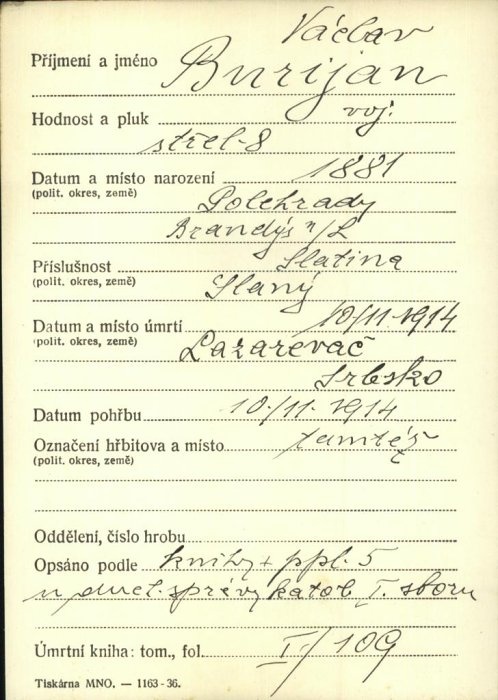 Václav
Příjmení a jméno Burijan
Hodnost a pluk voj.
střel-8
Datum a místo narození 1881
(polit. okres, země) Polehrady
Brandýs n/L
Příslušnost Slatina
(polit. okres, země) Slaný
Datum a místo úmrtí 10/11 1914
(polit. okres, země) Lazarevač
Srbsko
Datum pohřbu 10/11. 1914
Označení hřbitova a místo tamtéž
(polit. okres, země)
Oddělení, číslo hrobu
Opsáno podle knihy + ppl. 5
u duch. správy katol I. sboru
Úmrtní kniha: tom., fol. I/109
Tiskárna MNO. — 1163-36.